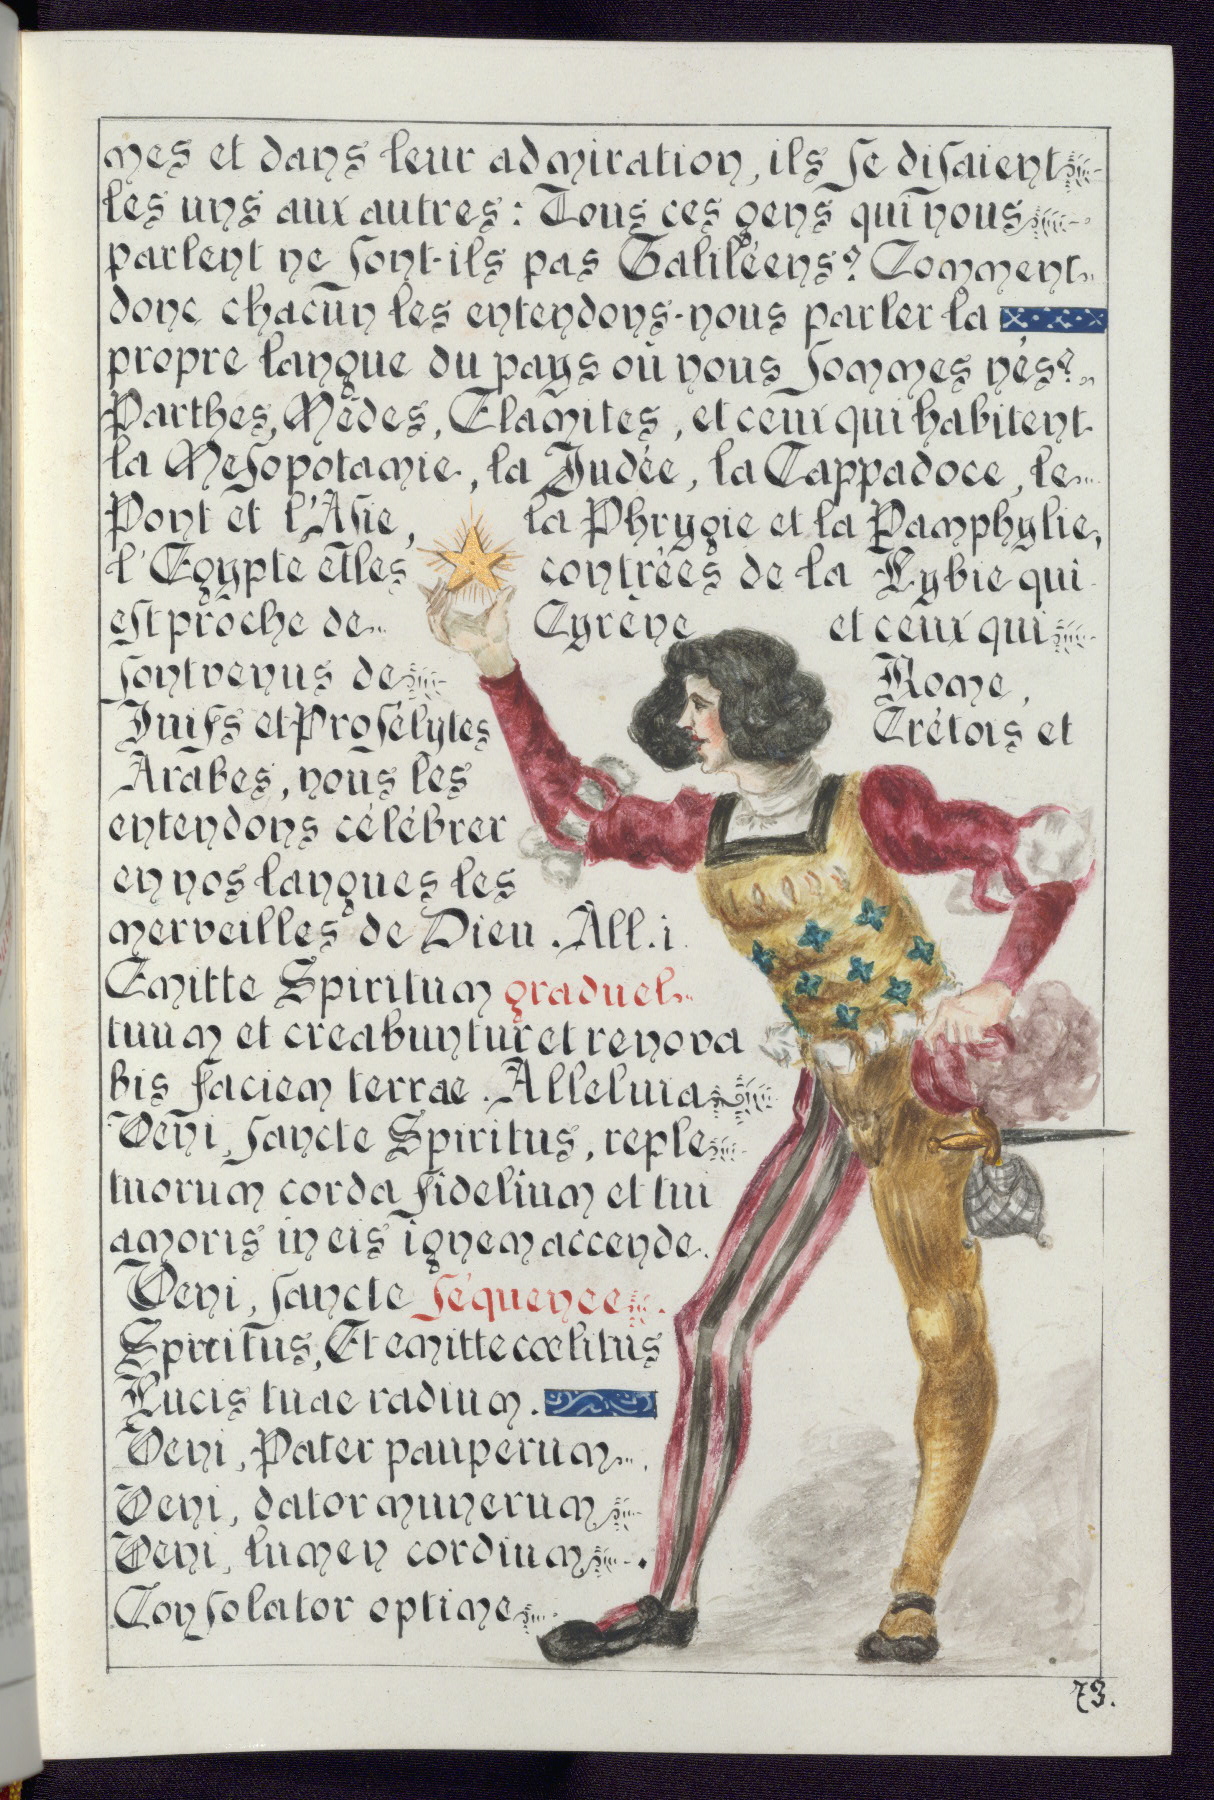 mes et dans leur admiration, ils se disaient
les uns aux autres: Tous ces gens qui nous
parlent ne sont-ils pas Galiléens? Comment
donc chacun les entendons-nous parler la
propre langue du pays où nous sommes nés?
Parthes, Mèdes, Elamites, et ceux qui habitent
la Mesopotamie, la Judée, la Cappadoce, le
Pont et l'Asie, la Phrygie et la Pamphylie,
l'Egypte et les contrées de la Lybie qui
est proche de Cyrène et ceux qui
sont venus de Rome,
Juifs et Prosélytes Crétois et
Arabes, nous les
entendons célébrer
en nos langues les
merveilles de Dieu. All. i
Emitte Spiritum graduel
tuum et creabuntur et renova
bis faciem terrae. Alleluia
Veni, sancte Spiritus, reple
tuorum corda fidelium et tui
amoris in eis ignem accende.
Veni, sancte séquence.
Spiritus, Et emitte cœlitus
Lucis tuae radium.
Veni, Pater pauperum.
Veni, dator munerum
Veni, lumen cordium.
Consolator optime
73.